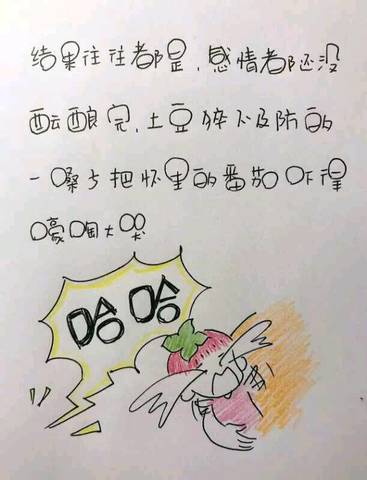 结果往往都是,感情都还没
酝酿完,土豆猝不及防的
一嗓子把怀里的番茄吓得
嚎啕大哭
哈哈